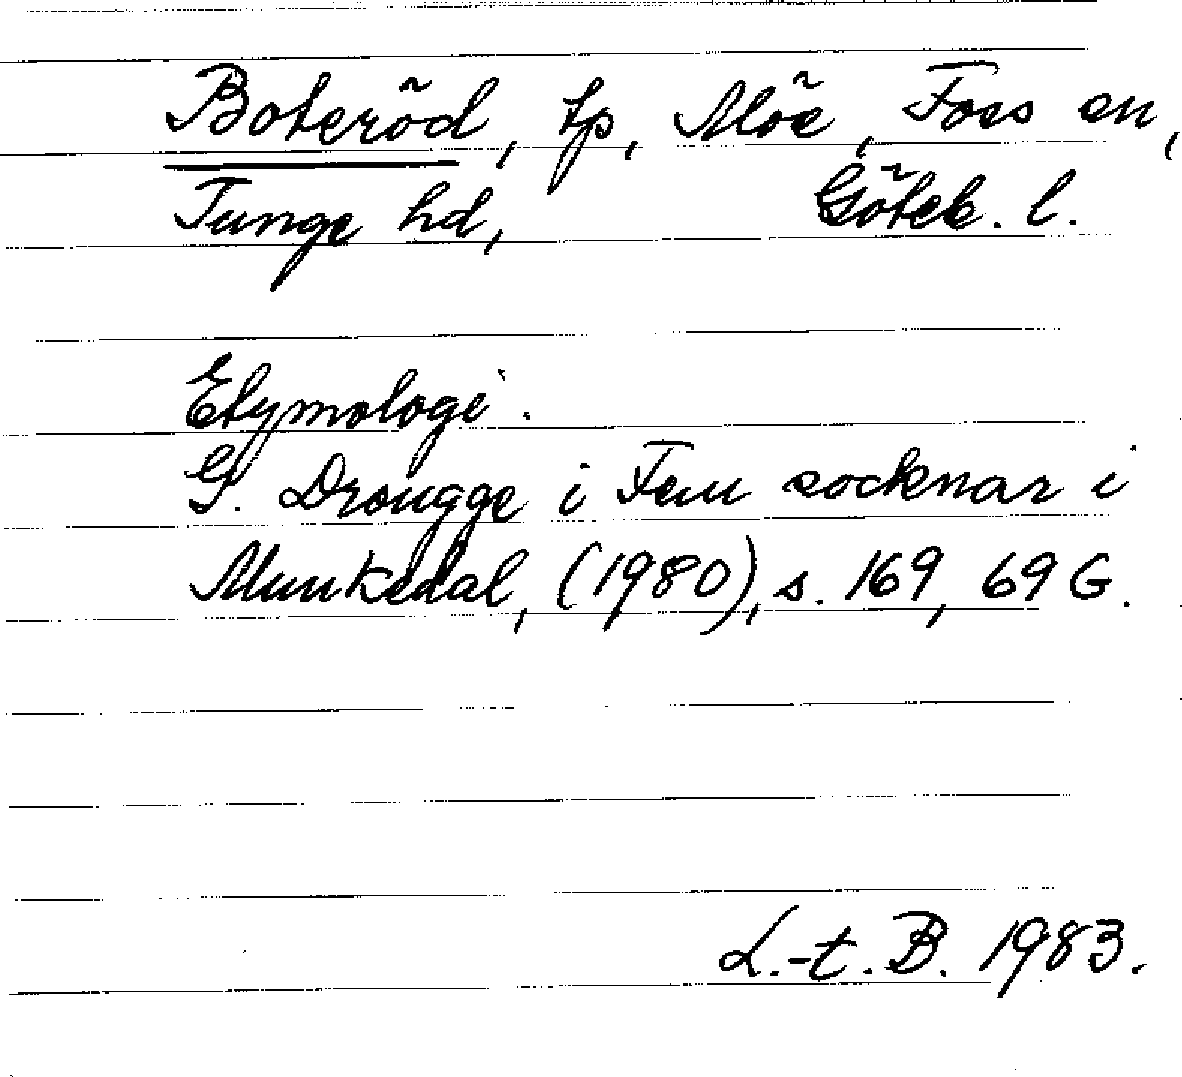 Boteröd, tp, Möe, Foss sn,
Tunge hd, Göteb. l.
Etymologi.
G. Drougge i Fem socknar i
Munkedal, (1980), s. 169, 69 G.
L.-t. B. 1983.